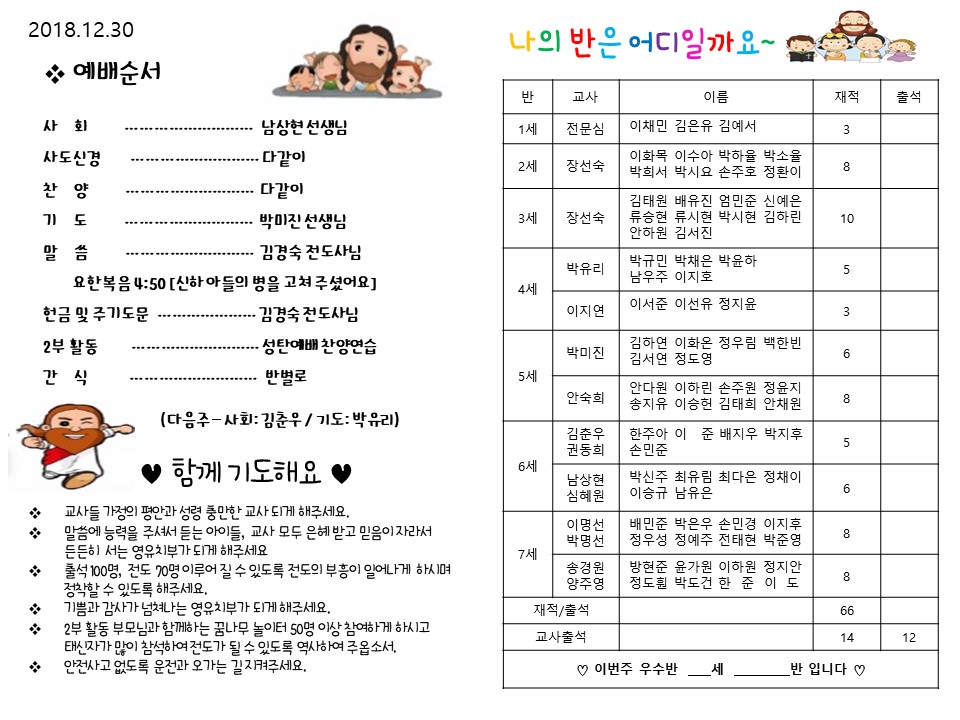 2018.12.30
❖ 예배순서
사 회 ............................ 남상현 선생님
사도신경 ............................ 다같이
찬 양 ............................ 다같이
기 도 ............................ 박미진 선생님
말 씀 ............................ 김경숙 전도사님
요한복음 4:50 [신하 아들의 병을 고쳐 주셨어요]
헌금 및 주기도문 ..................... 김경숙 전도사님
2부 활동 ............................ 성탄예배 찬양연습
간 식 ............................ 반별로
(다음주 – 사회: 김춘우 / 기도: 박유리)
♥ 함께 기도해요 ♥
❖ 교사들 가정의 평안과 성령 충만한 교사 되게 해주세요.
❖ 말씀에 능력을 주셔서 듣는 아이들, 교사 모두 은혜 받고 믿음이 자라서
든든히 서는 영유치부가 되게 해주세요
❖ 출석 100명, 전도 70명 이루어 질 수 있도록 전도의 부흥이 일어나게 하시며
정착할 수 있도록 해주세요.
❖ 기쁨과 감사가 넘쳐나는 영유치부가 되게 해주세요.
❖ 2부 활동 부모님과 함께하는 꿈나무 놀이터 50명 이상 참여하게 하시고
태신자가 많이 참석하여 전도가 될 수 있도록 역사하여 주옵소서.
❖ 안전사고 없도록 운전과 오가는 길 지켜주세요.
나의 반은 어디일까요~
반 교사 이름 재적 출석
1세 전문심 이채민 김은유 김예서 3
2세 장선숙 이화목 이수아 박하율 박소율 8
박희서 박시요 손주호 정환이
3세 장선숙 김태원 배유진 엄민준 신예은 10
류승현 류시현 박시현 김하린
안하원 김서진
4세 박유리 박규민 박채은 박윤하 5
남우주 이지호
이지연 이서준 이선유 정지윤 3
5세 박미진 김하연 이화온 정우림 백한빈 6
김서연 정도영
안숙희 안다원 이하린 손주원 정윤지 8
송지유 이승헌 김태희 안채원
6세 김춘우 권동희 한주아 이 준 배지우 박지후 5
손민준
남상현 심혜원 박신주 최유림 최다은 정채이 6
이승규 남유은
7세 이명선 박명선 배민준 박은우 손민경 이지후 8
정우성 정예주 전태현 박준영
송경원 양주영 방현준 윤가원 이하원 정지안 8
정도훤 박도건 한 준 이 도
재적/출석 66
교사출석 14 12
♡ 이번주 우수반 ___세 _______반 입니다 ♡